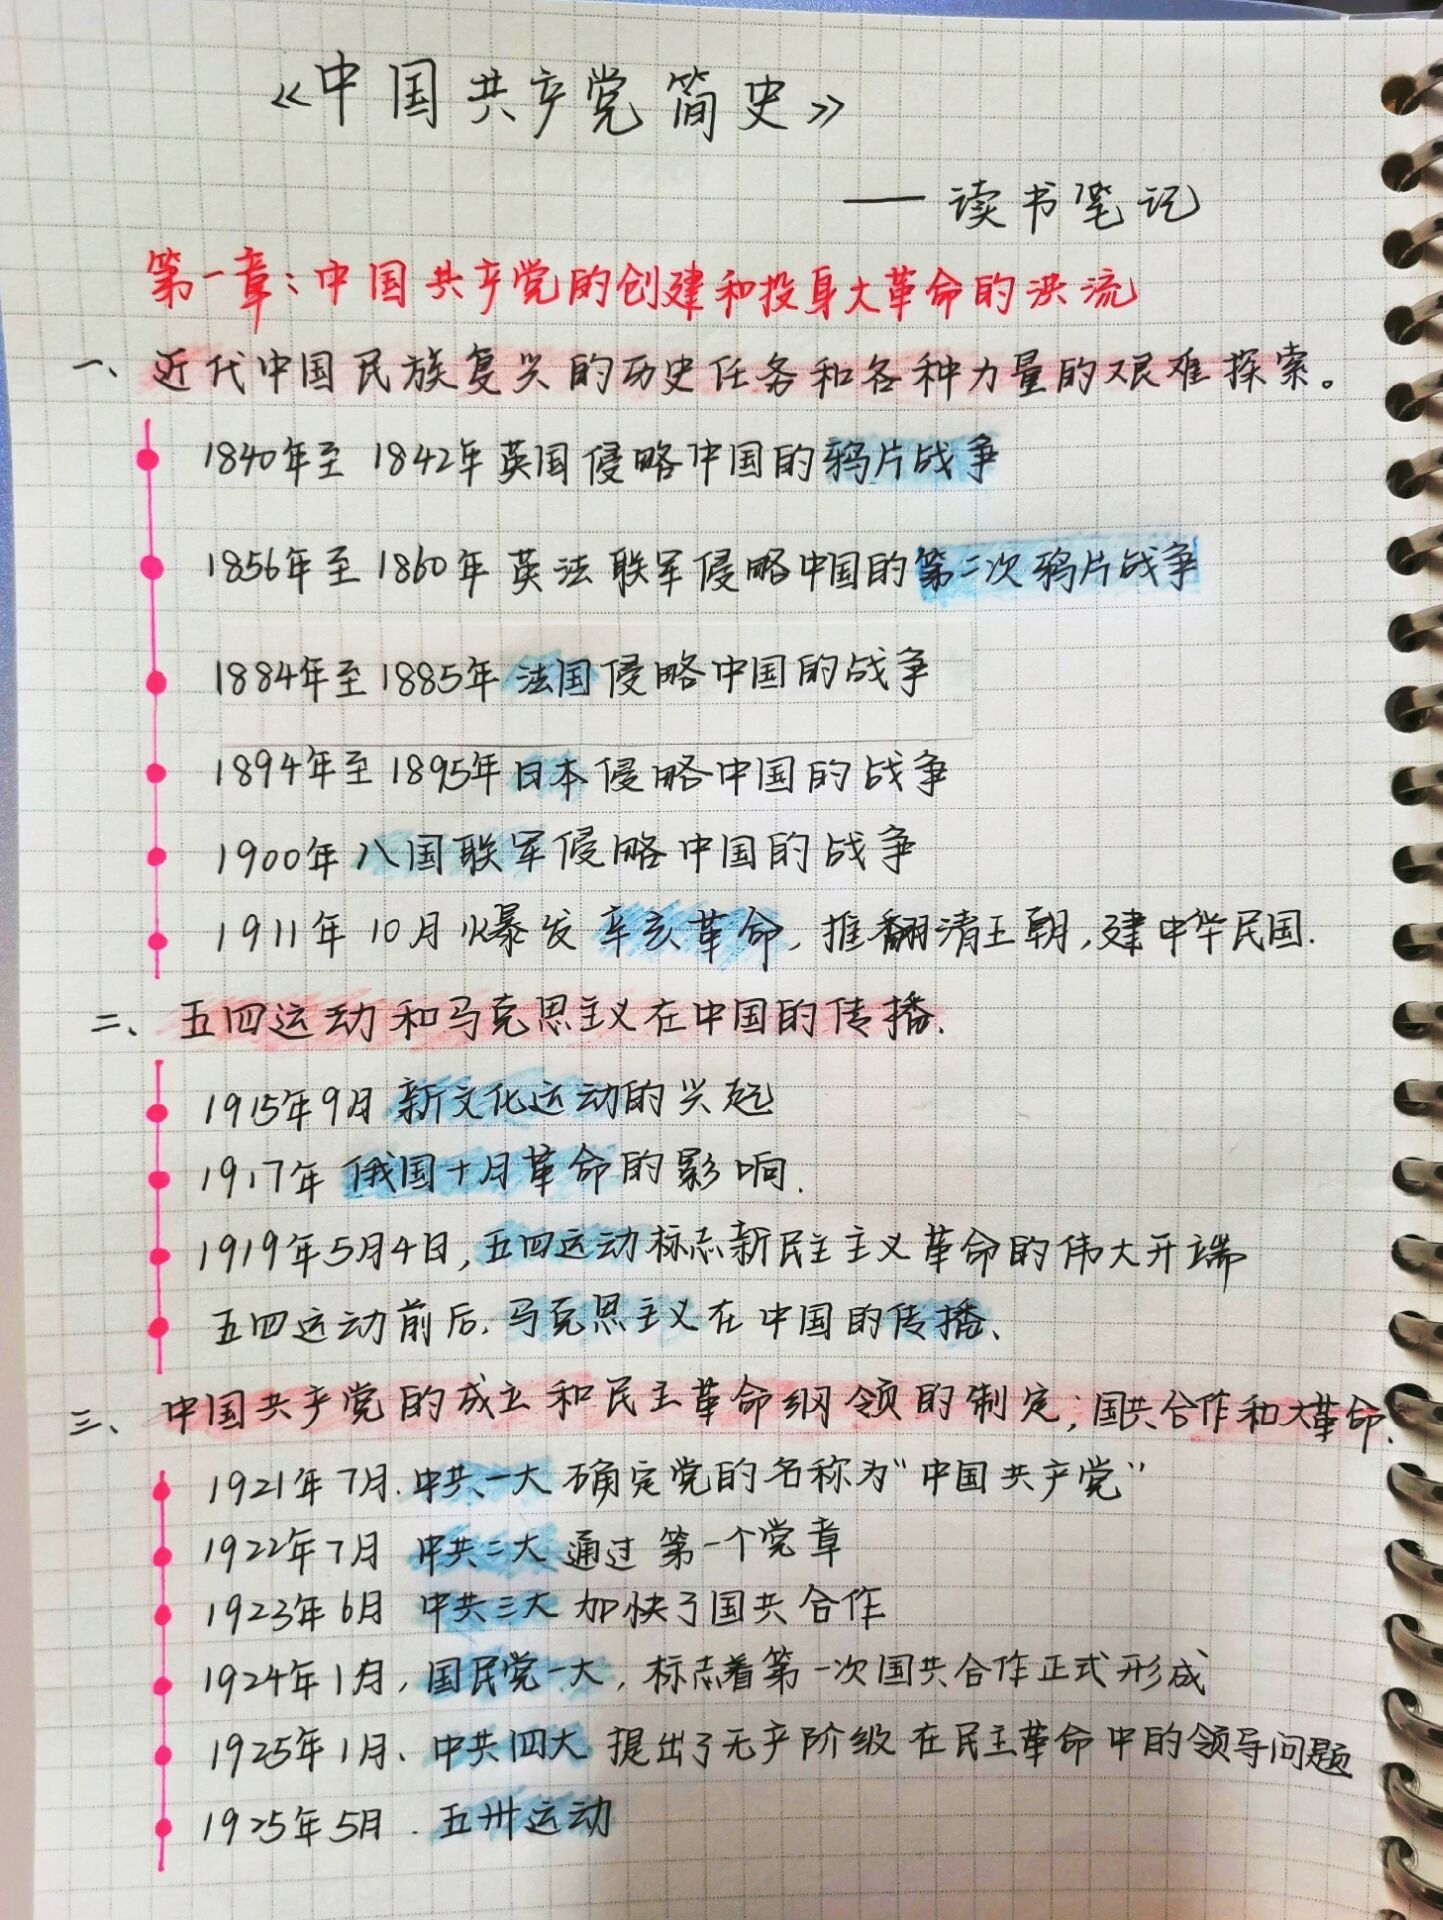 《中国共产党简史》
——读书笔记
第一章：中国共产党的创建和投身大革命的洪流
一、近代中国民族复兴的历史任务和各种力量的艰难探索。
1840年至1842年英国侵略中国的鸦片战争
1856年至1860年英法联军侵略中国的第二次鸦片战争
1884年至1885年法国侵略中国的战争
1894年至1895年日本侵略中国的战争
1900年八国联军侵略中国的战争
1911年10月爆发辛亥革命，推翻清王朝，建中华民国.
二、五四运动和马克思主义在中国的传播.
1915年9月新文化运动的兴起
1917年俄国十月革命的影响.
1919年5月4日，五四运动标志新民主主义革命的伟大开端
五四运动前后.马克思主义在中国的传播、
三、中国共产党的成立和民主革命纲领的制定；国共合作和大革命.
1921年7月.中共一大确定党的名称为“中国共产党”
1922年7月 中共二大 通过第一个党章
1923年6月 中共三大加快了国共合作
1924年1月，国民党一大，标志着第一次国共合作正式形成
1925年1月、中共四大 提出了无产阶级在民主革命中的领导问题
1925年5月.五卅运动